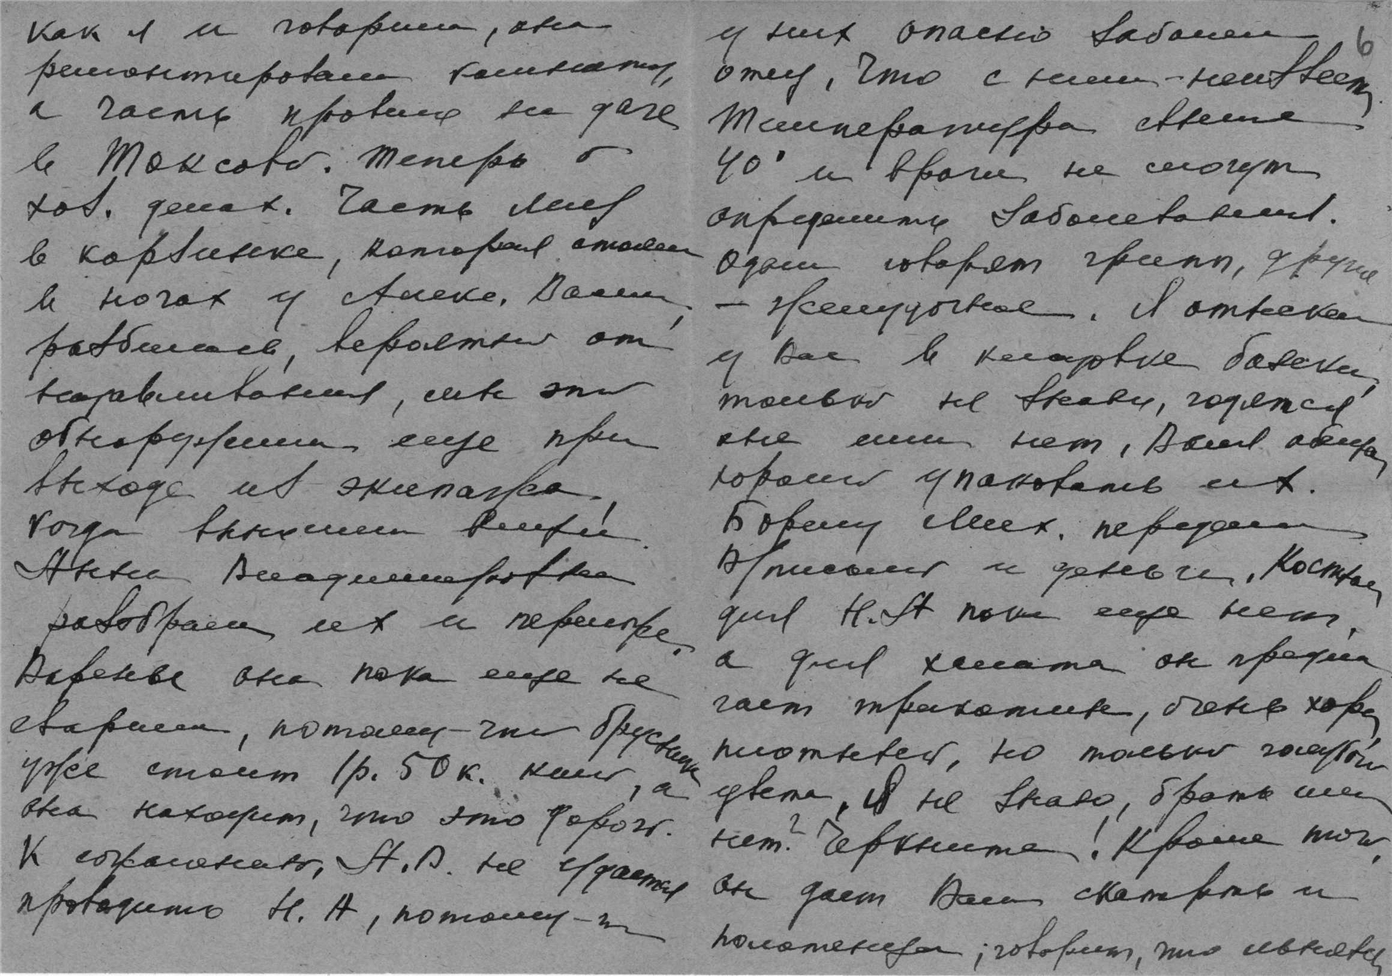 как я и говорил, она
ремонтировали комнату,
а часть провела на даче
в Токсово. Теперь о
хоз. делах. Часть яиц
в корзинке, которая стояла
в ногах у Алекс. Вашей,
разбилась, вероятно от
надавливания, мы это
обнаружили еще при
выходе из экипажа,
когда вынимали вещи.
Анна Владимировна
разобрала их и
Варенье она пока еще не
сварила, потому-что брусника
уже стоит 1р. 50к. кило, а
она находит, что это дорого.
К сожалению, А.В. не удастся
проводить Н. А, потому-что
6
у них опасно заболел
отец, что с ним - неизвестно,
Температура свыше
40° и врачи не могут
определить заболевания.
Одни говорят грипп, другие
- желудочное. Я отыскал
у Вас в кладовке банки,
только не знаю, годятся
они или нет, Ваня обещал
хорошо упаковать их.
Борису Мих. передали
письмо и деньги. Костюма
для Н.А пока еще нет,
а для халата он предла
гает трикотин, очень хорош,
плотный, но только голубой
цвета, Я не знаю, брать или
нет? Черкните! Кроме того,
он даст Вам скатерть и
полотенца; говорит, что